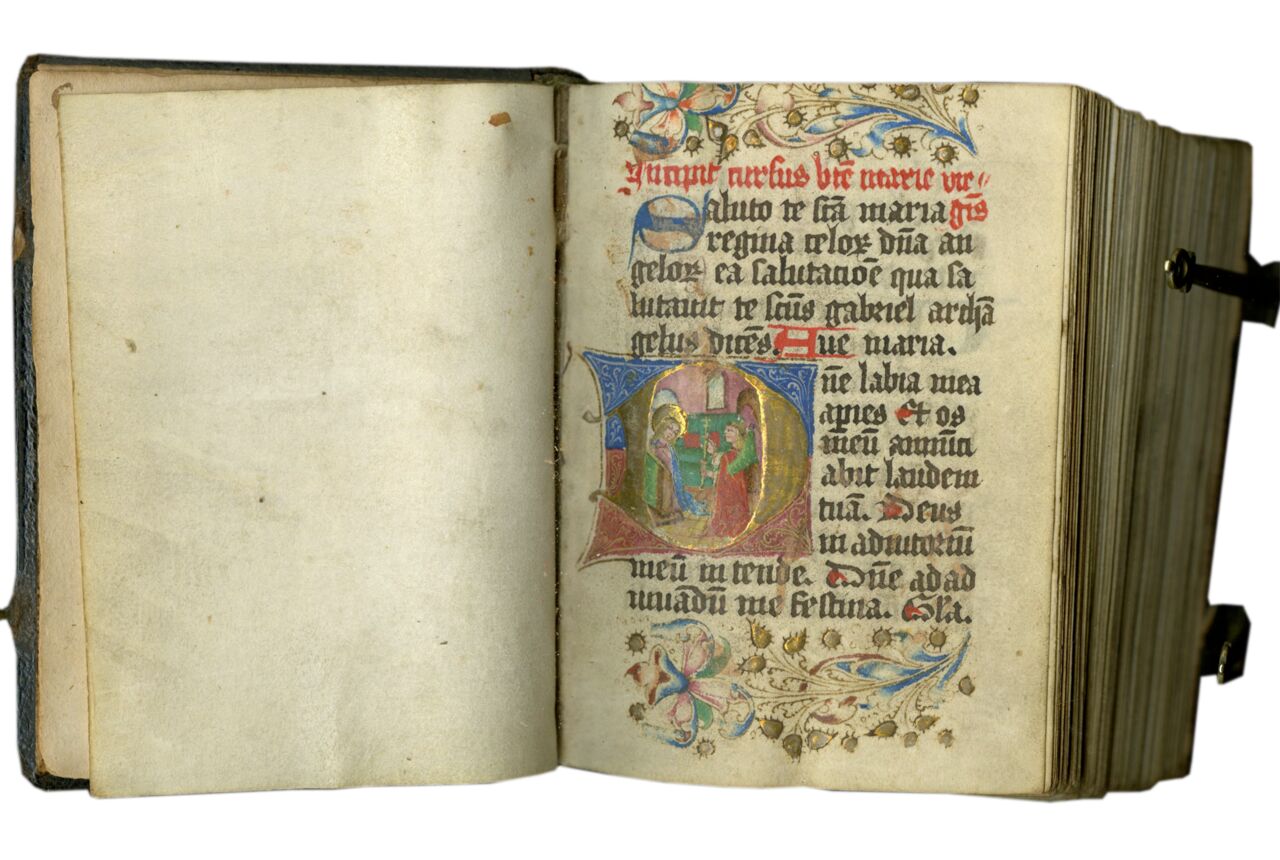 Incipit cursus bt̄e marie vir⸗
Saluto te sc̄a maria gīs
regina celoꝝ dn̄a an
geloꝝ ea salutacōe qua sa
lutauit te sc̄us gabriel archā
gelus dicēs. Aue maria.
Dn̄e labia mea
apies Et os
meū annūci
abit laudem
tuā. Deus
in adiutoriū
meū in tende. Dn̄e ad ad
iuuādū me festina. Gl̄a.